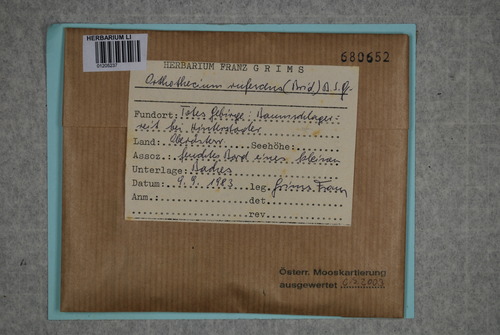 HERBARIUM LI
01206237
680652
HERBARIUM FRANZ GRIMS
Orthothecium rufescens (Brid) B.S.G.
Fundort: Totes Gebirge: Baumschlager-
reit bei Hinterstoder
Land: Oberösterr. Seehöhe:
Assoz. feuchtes Bord eines kleinen
Unterlage: Baches
Datum: 9.9.1983 leg. Grims Franz
Anm.: det.
rev.
Österr. Mooskartierung
ausgewertet